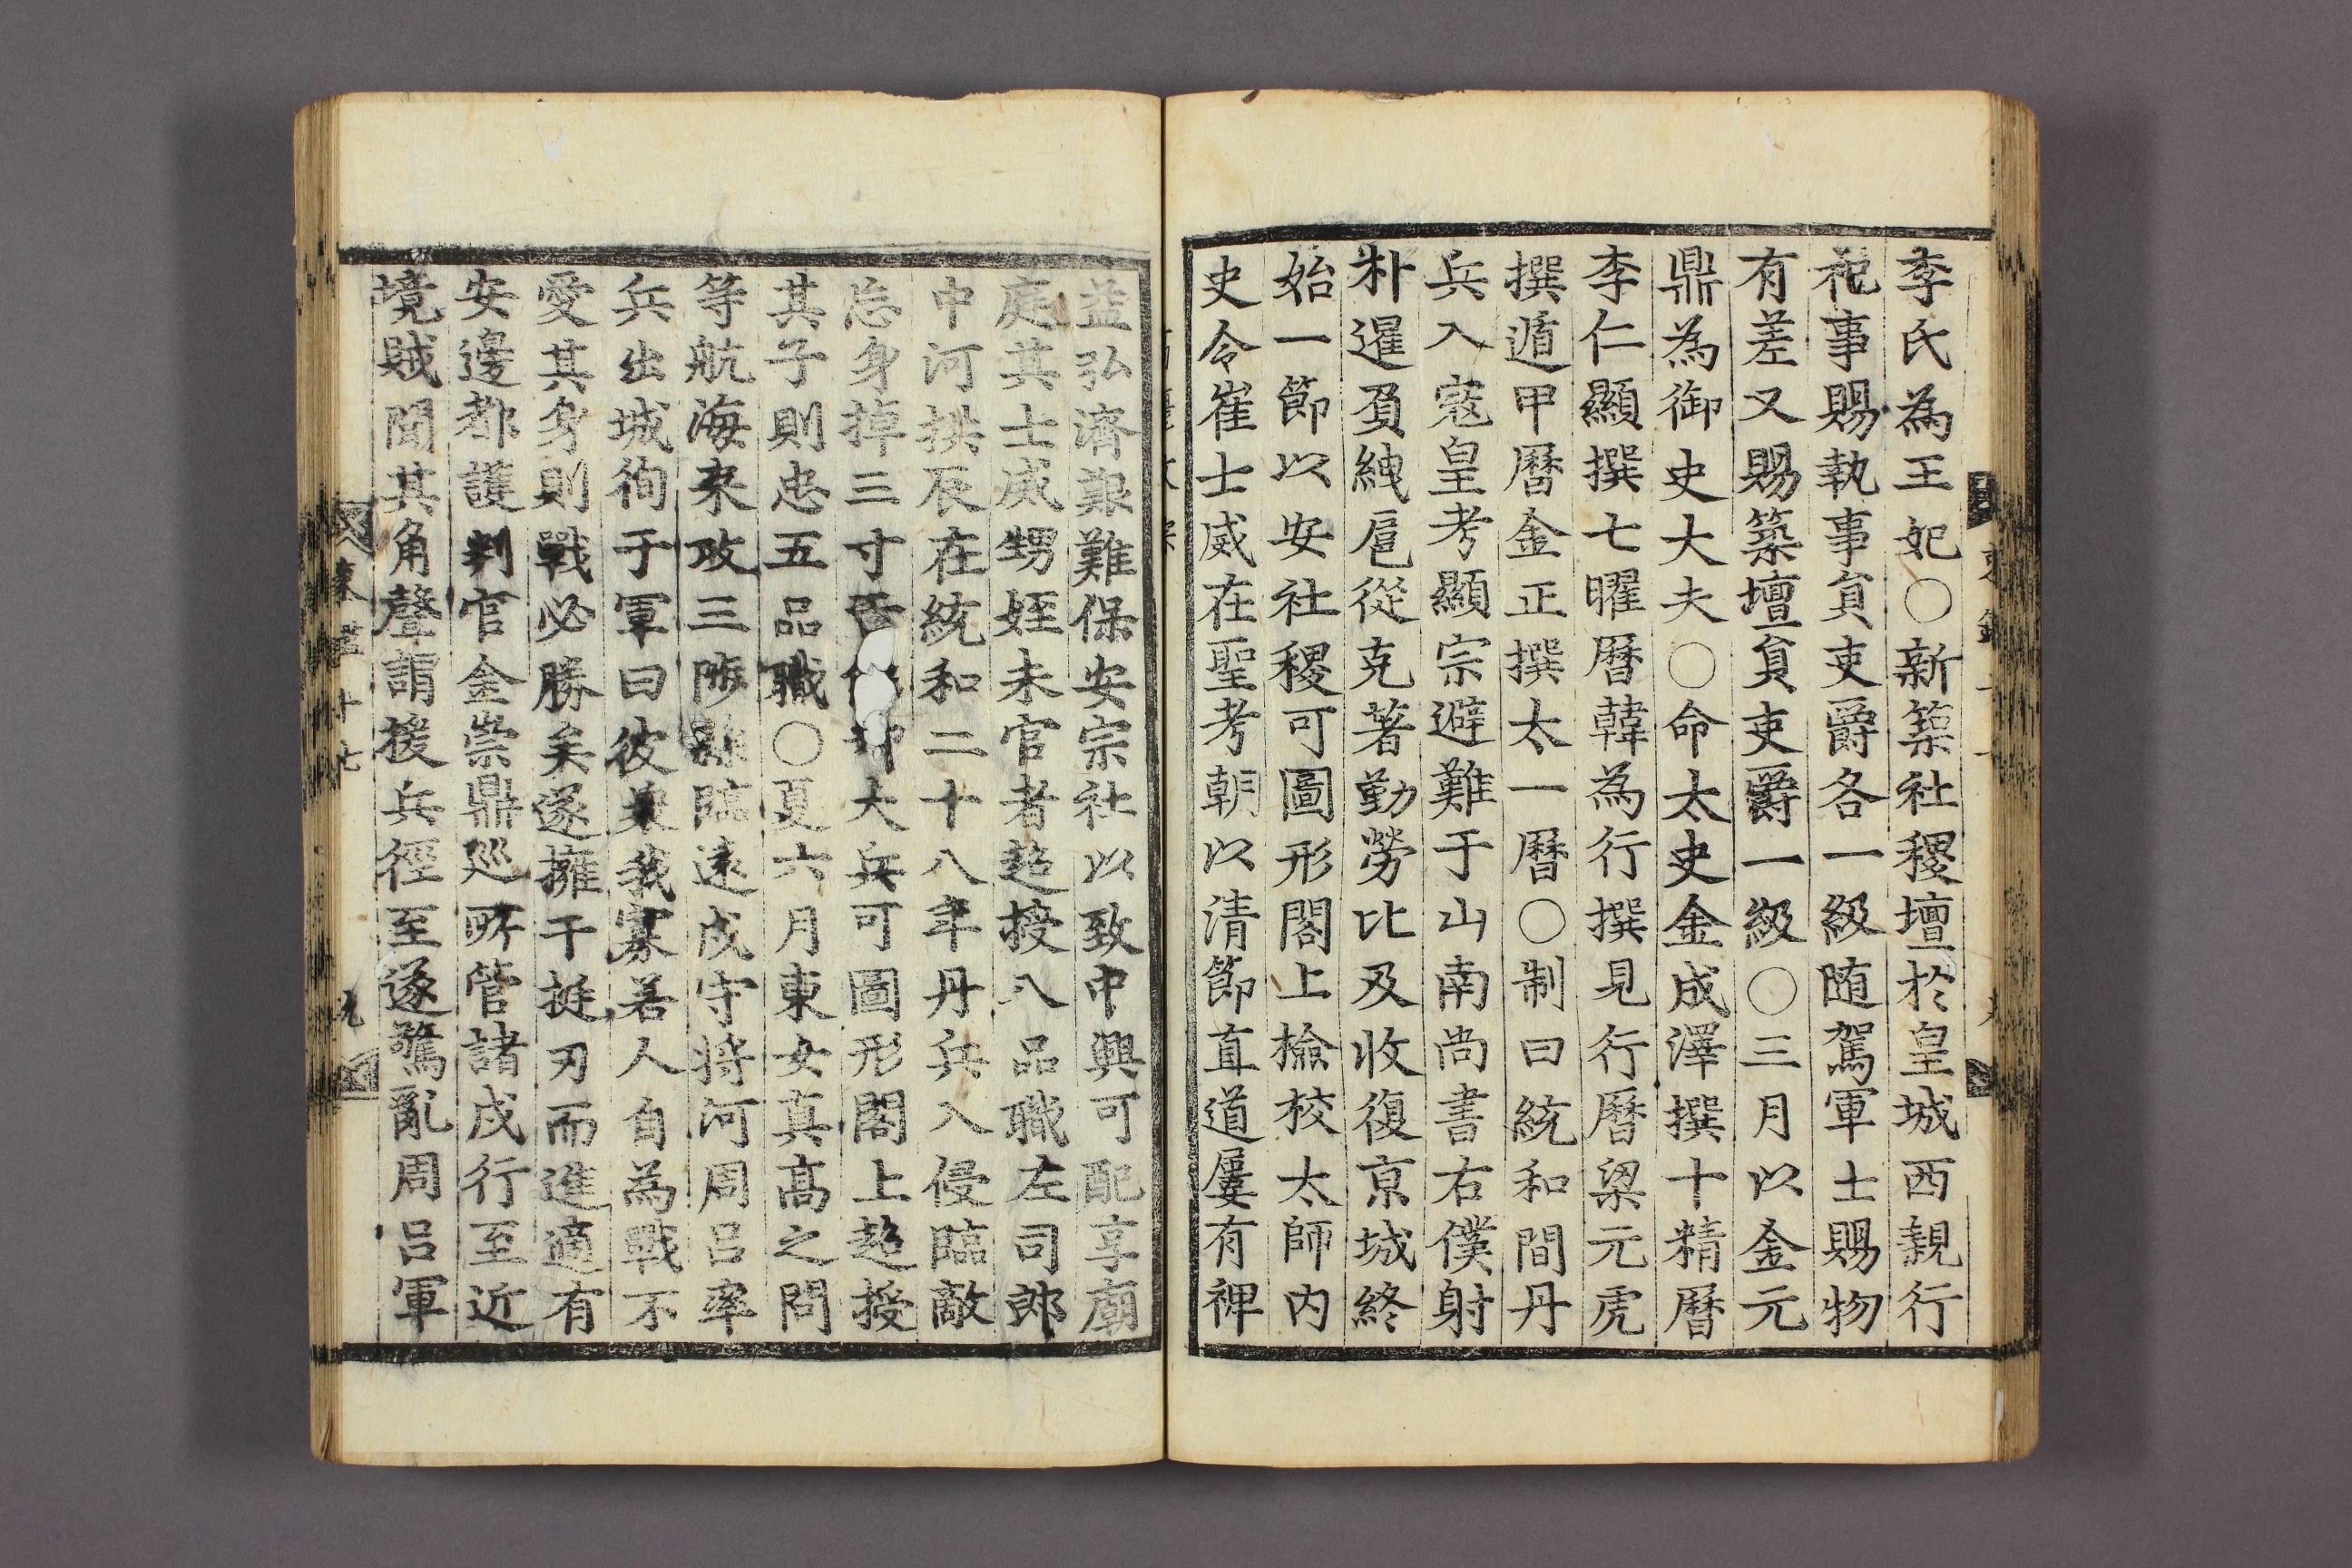 李氏為王妃○新築社稷壇於皇城西親行
祀事賜執事員吏爵各一級随駕軍士賜物
有差又賜築壇員吏爵一級○三月以金元
鼎為御史大夫○命太史金成澤撰十精曆
李仁顯撰七曜曆韓為行撰見行曆梁元虎
撰遁甲曆金正撰太一曆○制曰統和間丹
兵入寇皇考顯宗避難于山南尚書右僕射
朴暹負絏扈從克著勤勞比及收復京城終
始一節以安社稷可圖形閣上撿校太師內
史令崔士威在聖考朝以清節直道屢有裨
益弘濟艱難保安宗社以致中興可配享廟
庭其士威甥姪未官者超授八品職左司郎
中河拱辰在統和二十八年丹兵入侵臨敵
忘身掉三寸舌能却大兵可圖形閣上超授
其子則忠五品職○夏六月東女真高之問
等航海來攻三陟縣臨遠戍守將河周呂率
兵出城徇于軍曰彼衆我寡若人自為戰不
愛其身則戰必勝矣遂擁干挺刃而進適有
安邊都護判官金崇鼎巡所管諸戍行至近
境賊聞其角聲謂援兵徑至遂驚亂周呂軍